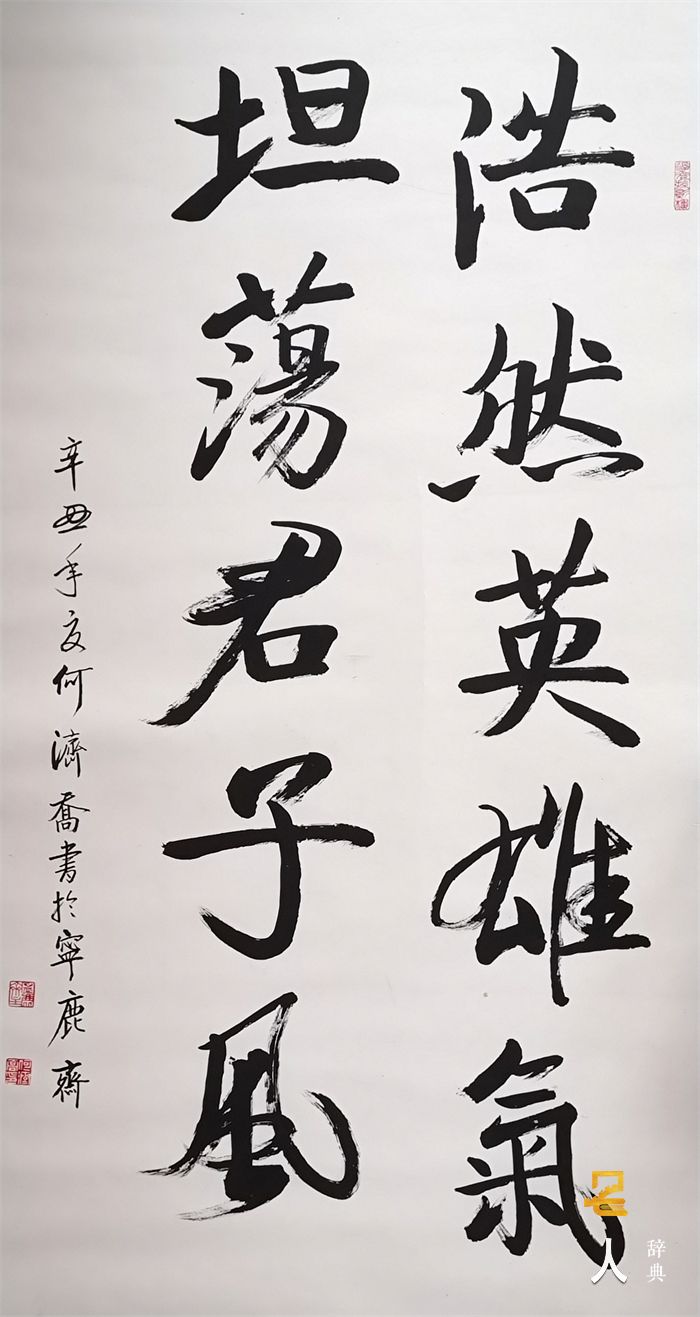 浩然英雄氣
坦蕩君子風
辛丑年夏何濟喬書於寧鹿齋
名人
辞典